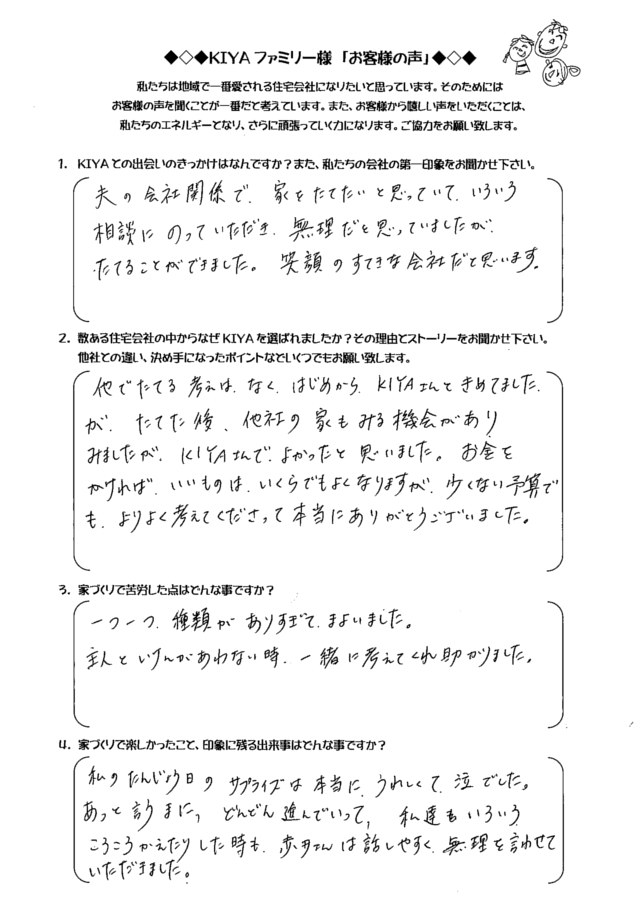 ◆◇◆KIYAファミリー様「お客様の声」◆◇◆
私たちは地域で一番愛される住宅会社になりたいと思っています。そのためには
お客様の声を聞くことが一番だと考えています。また、お客様から嬉しい声をいただくことは、
私たちのエネルギーとなり、さらに頑張っていく力になります。ご協力をお願い致します。
1. KIYAとの出会いのきっかけはなんですか？また、私たちの会社の第一印象をお聞かせ下さい。
夫の会社関係で、家をたてたいと思っていて、いろいろ
相談にのっていただき、無理だと思っていましたが、
たてることができました。笑顔のすてきな会社だと思います。
2. 数ある住宅会社の中からなぜKIYAを選ばれましたか？その理由とストーリーをお聞かせ下さい。
他社との違い、決め手になったポイントなどいくつでもお願い致します。
他でたてる考えは、なく、はじめから、KIYAさんときめてました
が、たてた後、他社の家もみる機会があり
みましたが、KIYAさんで、よかったと思いました。お金を
かければ、いいものは、いくらでもよくなりますが、少くない予算で
も、よりよく考えてくださって本当にありがとうございました。
3. 家づくりで苦労した点はどんな事ですか？
一つ一つ、種類がありすぎて、まよいました。
主人といけんがあわない時、一緒に考えてくれ助かりました。
4. 家づくりで楽しかったこと、印象に残る出来事はどんな事ですか？
私のたんじょう日のサプライズは本当に、うれしくて、泣でした。
あっと言うまに、どんどん進んでいって、私達もいろいろ
ころころかえたりした時も、さんは話しやすく、無理を言わせて
いただきました。